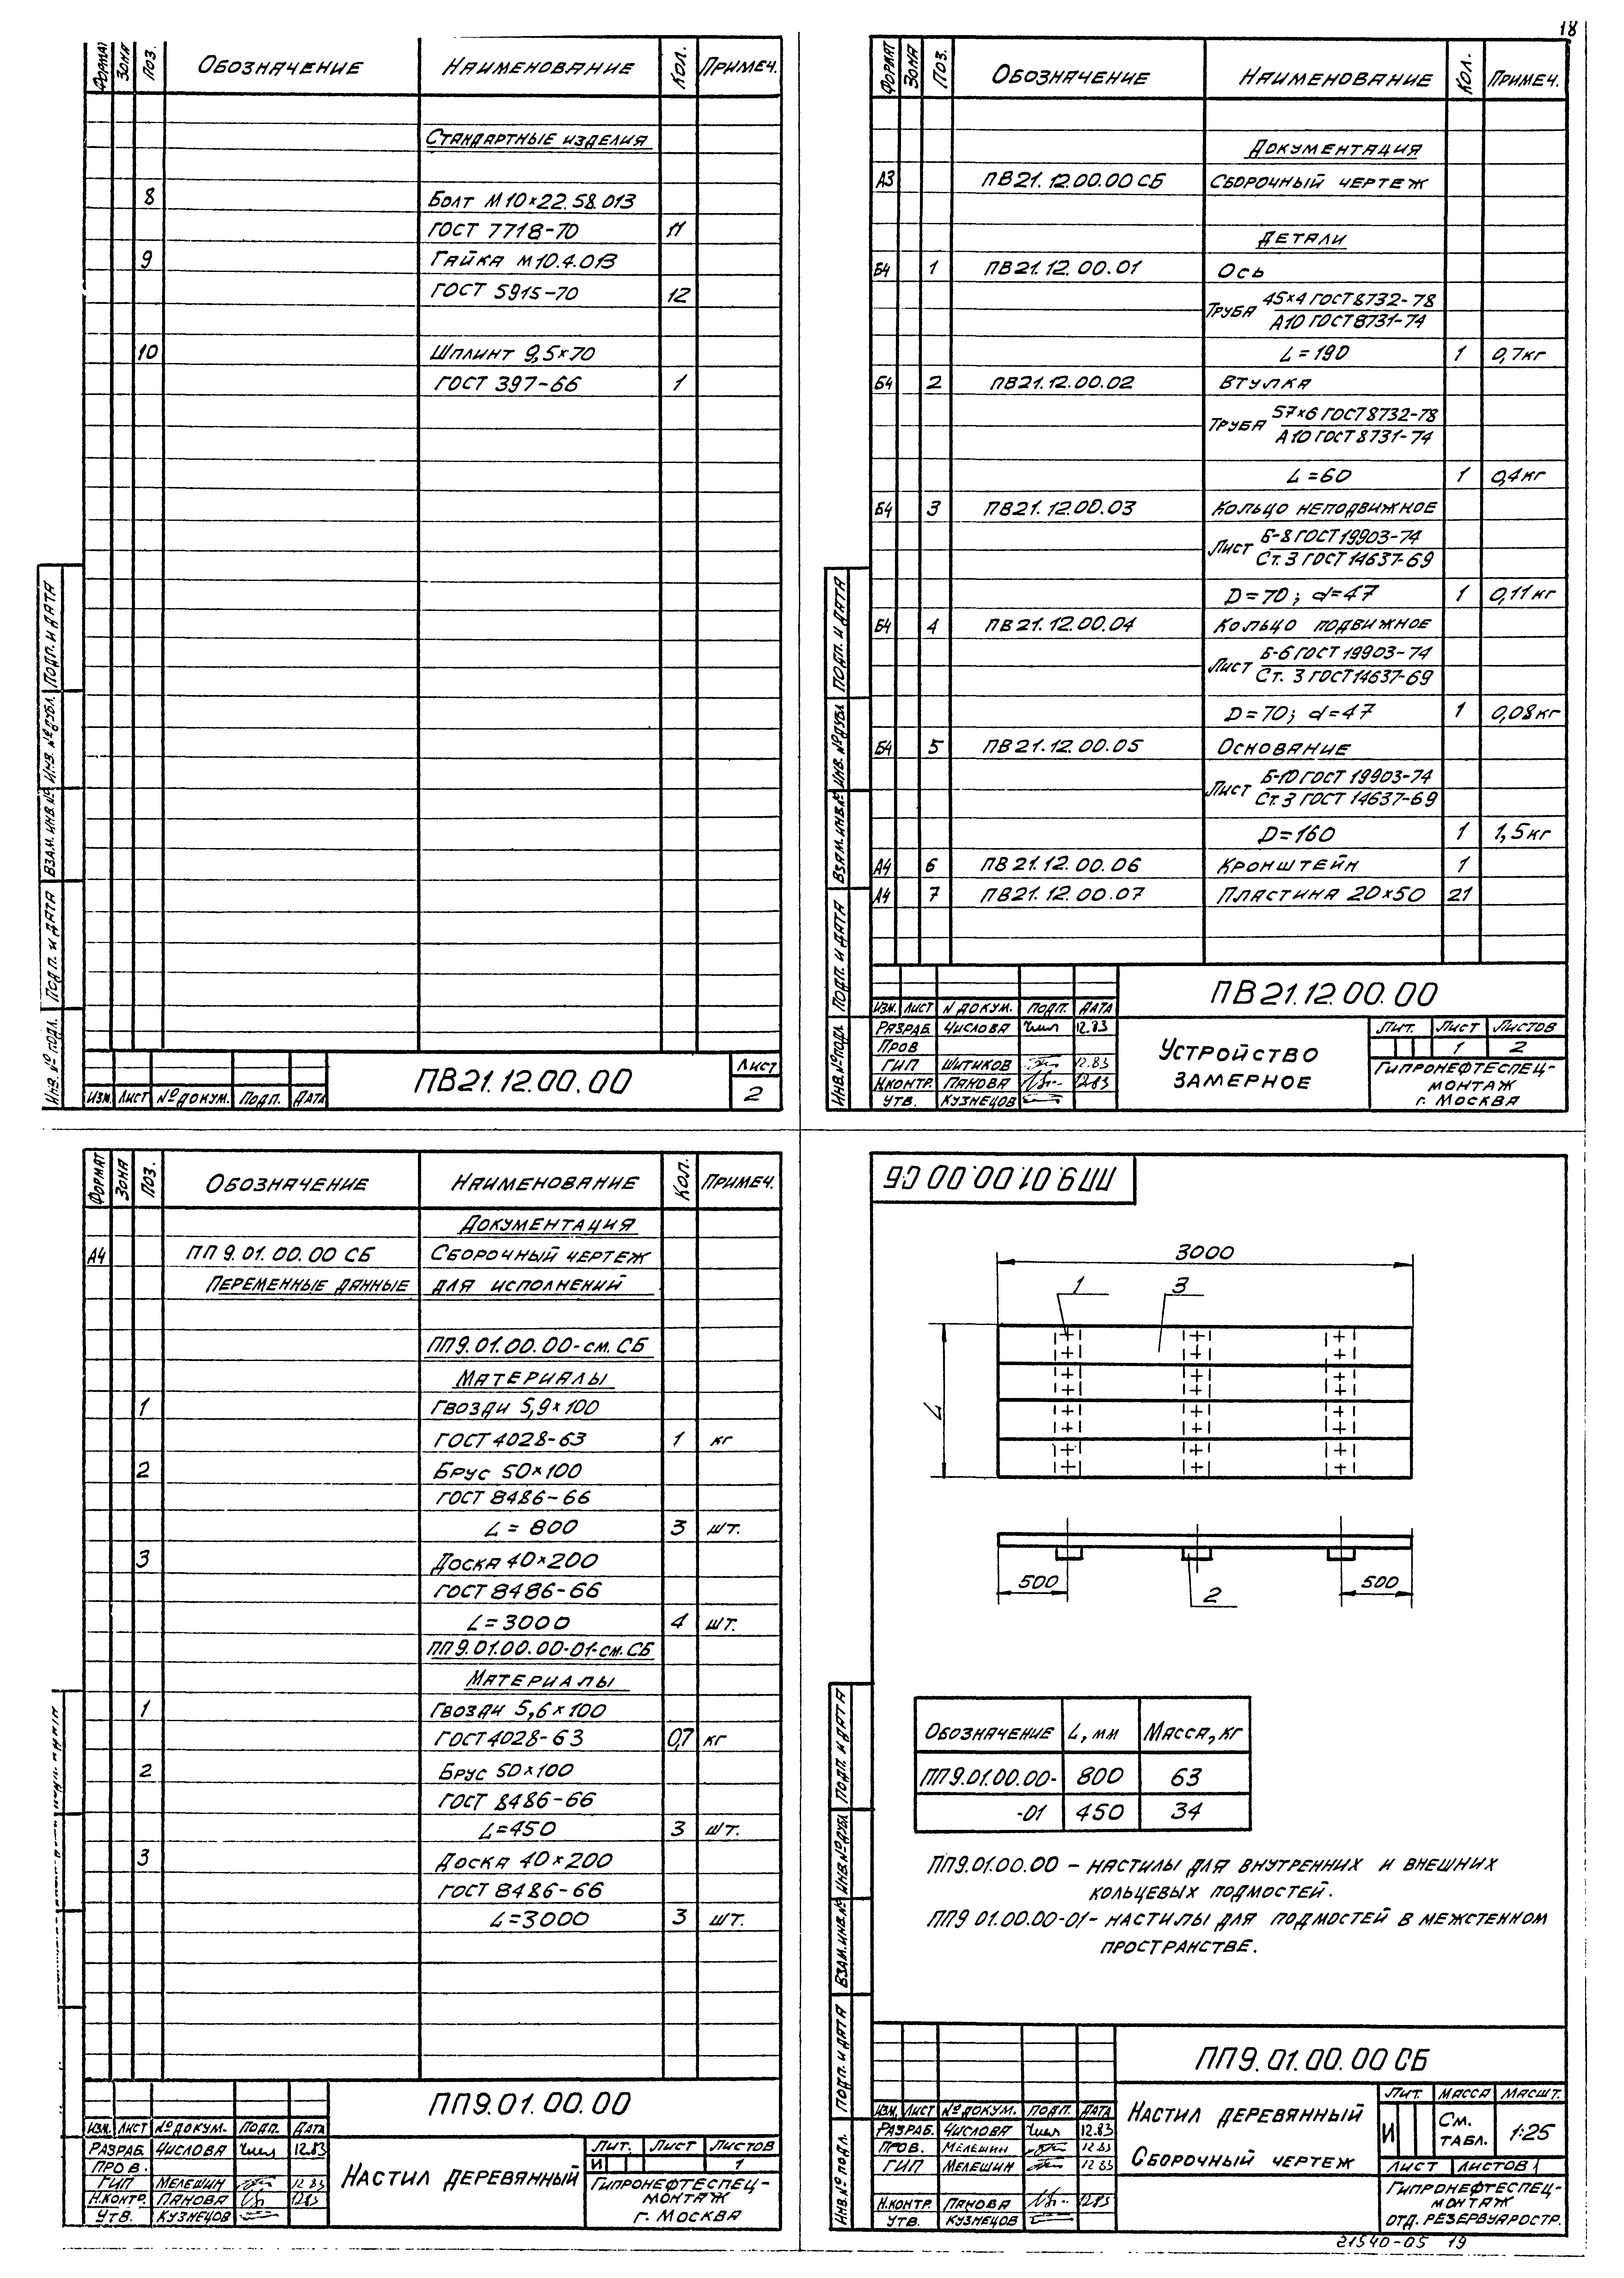 18
ФОРМАТ ЗОНА ПОЗ. ОБОЗНАЧЕНИЕ НАИМЕНОВАНИЕ КОЛ. ПРИМЕЧ.
СТАНДАРТНЫЕ ИЗДЕЛИЯ
8 БОЛТ М10×22.58.013
ГОСТ 7718-70 11
9 ГАЙКА М10.4.013
ГОСТ 5915-70 12
10 ШПЛИНТ 9,5×70
ГОСТ 397-66 1
ИНВ. № ПОДЛ. ПОДП. И ДАТА ВЗАМ. ИНВ. № ИНВ. № ДУБЛ. ПОДП. И ДАТА
ИЗМ. ЛИСТ № ДОКУМ. ПОДП. ДАТА
ПВ21.12.00.00
ЛИСТ
2
ФОРМАТ ЗОНА ПОЗ. ОБОЗНАЧЕНИЕ НАИМЕНОВАНИЕ КОЛ. ПРИМЕЧ.
ДОКУМЕНТАЦИЯ
А3 ПВ21.12.00.00 СБ СБОРОЧНЫЙ ЧЕРТЕЖ
ДЕТАЛИ
Б4 1 ПВ21.12.00.01 ОСЬ
ТРУБА 45×4 ГОСТ 8732-78
А10 ГОСТ 8731-74
L=190 1 0,7кг
Б4 2 ПВ21.12.00.02 ВТУЛКА
ТРУБА 57×6 ГОСТ 8732-78
А10 ГОСТ 8731-74
L=60 1 0,4кг
Б4 3 ПВ21.12.00.03 КОЛЬЦО НЕПОДВИЖНОЕ
ЛИСТ Б-8 ГОСТ 19903-74
Ст. 3 ГОСТ 14637-69
D=70; d=47 1 0,11кг
Б4 4 ПВ21.12.00.04 КОЛЬЦО ПОДВИЖНОЕ
ЛИСТ Б-6 ГОСТ 19903-74
Ст. 3 ГОСТ 14637-69
D=70; d=47 1 0,08кг
Б4 5 ПВ21.12.00.05 ОСНОВАНИЕ
ЛИСТ Б-10 ГОСТ 19903-74
Ст. 3 ГОСТ 14637-69
D=160 1 1,5кг
А4 6 ПВ21.12.00.06 КРОНШТЕЙН 1
А4 7 ПВ21.12.00.07 ПЛАСТИНА 20×50 21
ИНВ. № ПОДЛ. ПОДП. И ДАТА ВЗАМ. ИНВ. № ИНВ. № ДУБЛ. ПОДП. И ДАТА
ПВ21.12.00.00
ИЗМ. ЛИСТ N ДОКУМ. ПОДП. ДАТА
РАЗРАБ. ЧИСЛОВА 12.83
ПРОВ
ГИП ШИТИКОВ 12.83
Н.КОНТР. ПАНОВА 12.83
УТВ. КУЗНЕЦОВ
УСТРОЙСТВО
ЗАМЕРНОЕ
ЛИТ. ЛИСТ ЛИСТОВ
1 2
ГИПРОНЕФТЕСПЕЦ-
МОНТАЖ
г. МОСКВА
ФОРМАТ ЗОНА ПОЗ. ОБОЗНАЧЕНИЕ НАИМЕНОВАНИЕ КОЛ. ПРИМЕЧ.
ДОКУМЕНТАЦИЯ
А4 ПП9.01.00.00 СБ СБОРОЧНЫЙ ЧЕРТЕЖ
ПЕРЕМЕННЫЕ ДАННЫЕ ДЛЯ ИСПОЛНЕНИЙ
ПП9.01.00.00-см. СБ
МАТЕРИАЛЫ
1 ГВОЗДИ 5,9×100
ГОСТ 4028-63 1 кг
2 БРУС 50×100
ГОСТ 8486-66
L=800 3 шт.
3 ДОСКА 40×200
ГОСТ 8486-66
L=3000 4 шт.
ПП9.01.00.00-01-см. СБ
МАТЕРИАЛЫ
1 ГВОЗДИ 5,6×100
ГОСТ 4028-63 0,7 кг
2 БРУС 50×100
ГОСТ 8486-66
L=450 3 шт.
3 ДОСКА 40×200
ГОСТ 8486-66
L=3000 3 шт.
ПП9.01.00.00
ИЗМ. ЛИСТ № ДОКУМ. ПОДП. ДАТА
РАЗРАБ. ЧИСЛОВА 12.83
ПРОВ.
ГИП МЕЛЕШИН 12.83
Н.КОНТР. ПАНОВА 12.83
УТВ. КУЗНЕЦОВ
НАСТИЛ ДЕРЕВЯННЫЙ
ЛИТ. ЛИСТ ЛИСТОВ
И 1
ГИПРОНЕФТЕСПЕЦ-
МОНТАЖ
г. МОСКВА
ПП9.01.00.00 СБ
3000
1 3
L
500 2 500
ОБОЗНАЧЕНИЕ L, мм МАССА, кг
ПП9.01.00.00- 800 63
-01 450 34
ПП9.01.00.00 - НАСТИЛЫ ДЛЯ ВНУТРЕННИХ И ВНЕШНИХ
КОЛЬЦЕВЫХ ПОДМОСТЕЙ.
ПП9 01.00.00-01- НАСТИЛЫ ДЛЯ ПОДМОСТЕЙ В МЕЖСТЕННОМ
ПРОСТРАНСТВЕ.
ИНВ. № ПОДЛ. ПОДП. И ДАТА ВЗАМ. ИНВ. № ИНВ. № ДУБЛ. ПОДП. И ДАТА
ПП9.01.00.00 СБ
ИЗМ. ЛИСТ № ДОКУМ. ПОДП. ДАТА
РАЗРАБ. ЧИСЛОВА 12.83
ПРОВ. МЕЛЕШИН 12.83
ГИП МЕЛЕШИН 12.83
Н.КОНТР. ПАНОВА 12.83
УТВ. КУЗНЕЦОВ
НАСТИЛ ДЕРЕВЯННЫЙ
СБОРОЧНЫЙ ЧЕРТЕЖ
ЛИТ. МАССА МАСШТ.
И СМ. ТАБЛ. 1:25
ЛИСТ ЛИСТОВ 1
ГИПРОНЕФТЕСПЕЦ-
МОНТАЖ
ОТД. РЕЗЕРВУАРОСТР.
21540-05 19